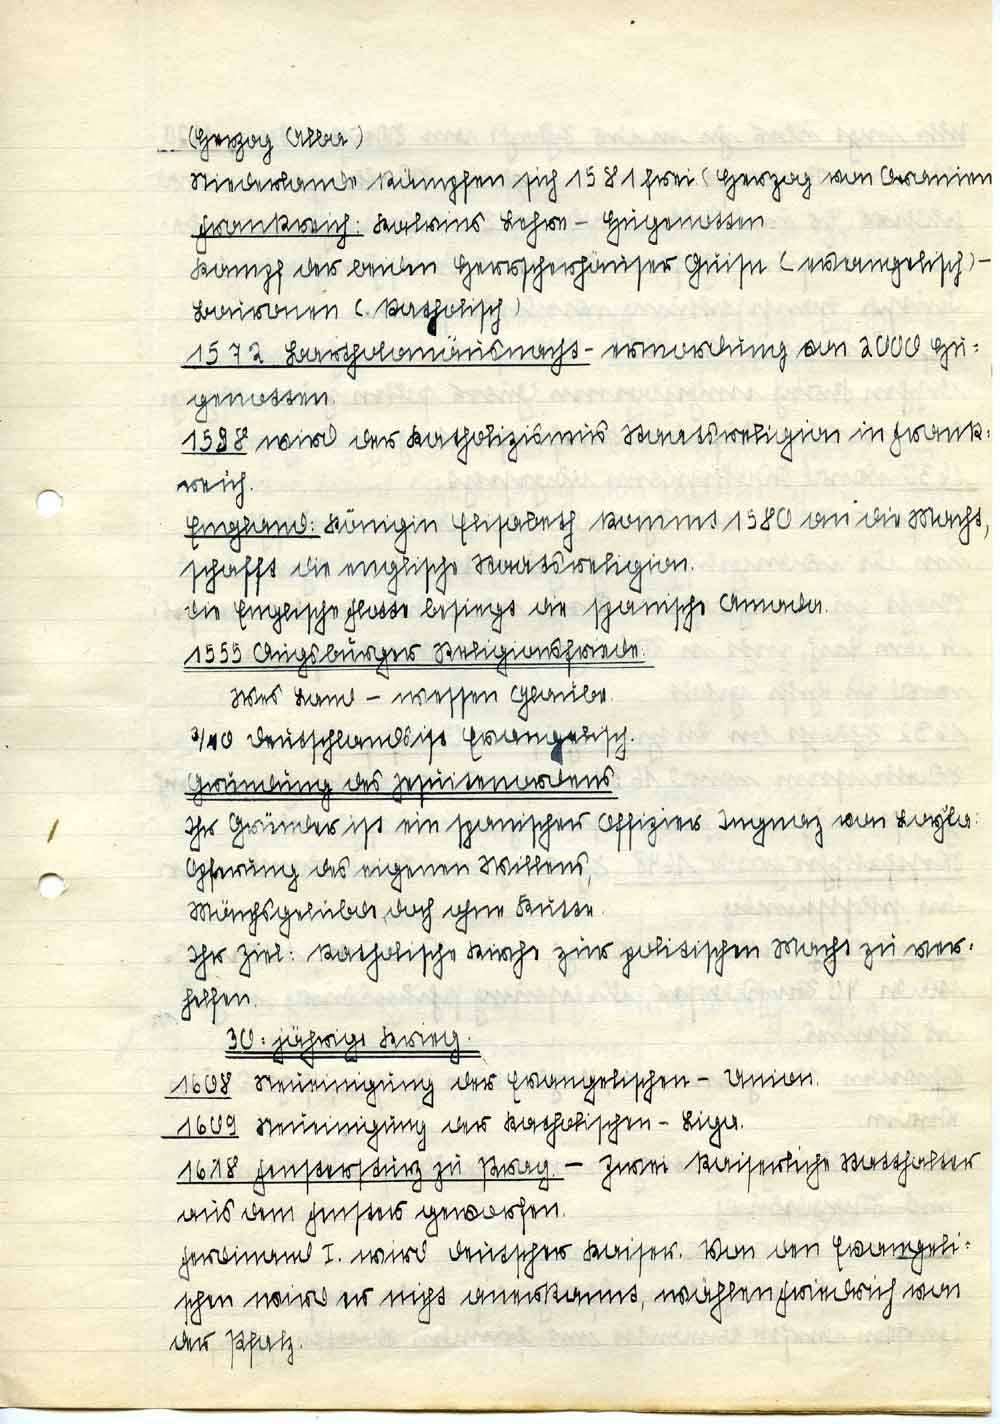 (Herzog Alba)
Niederlande kämpfen sich 1581 frei (Herzog von Oranien
Frankreich: Kalvins Lehre – Hugenotten
Kampf der beiden Herrscherhäuser Guise (evangelisch) –
Bouronen (Katholisch)
1572 Bartholomäusnacht – ermordung von 2000 Hu=
genotten.
1598 wird der Katholizismus Staatsreligion in Frank=
reich.
England: Königin Elisabeth kommt 1580 an die Macht,
schafft die englische Staatsreligion.
die Englische Flotte besiegt die spanische Amada.
1555 Augsburger Religionsfriede.
Wes Land – wessen Glaube.
9/10 Deutschlands ist Evangelisch.
Gründung des Jesuitenordens
Ihr Gründer ist ein spanischer Offizier Ingnaz von Loyla:
Opferung des eigenen Willens,
Mönchsgelübde, doch ohne Kutte.
Ihr Ziel: Katholische Kirche zur politischen Macht zu ver=
helfen.
30=jährige Krieg.
1608 Vereinigung der Evangelischen – Union.
1609 Vereinigung der Katholischen – Liga.
1618 Fenstersturz zu Prag. – Zwei Kaiserliche Statthalter
aus dem Fenster geworfen.
Ferdinand I. wird deutscher Kaiser. Von den Evangeli=
schen wird er nicht anerkannt, wählen Friedrich von
der Pfalz.